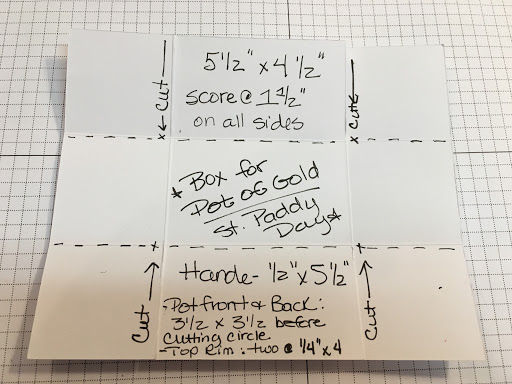 5 1/2" x 4 1/2"
score @ 1 1/2"
on all sides
← Cut
Cut ←
x
x
* Box for
Pot of Gold
St. Paddy
Day *
x
x
Cut →
Cut →
Hande- 1/2" x 5 1/2"
- Pot front & Back:
3 1/2 x 3 1/2 before
Cutting circle
- Top Rim: two @ 1/4" x 4